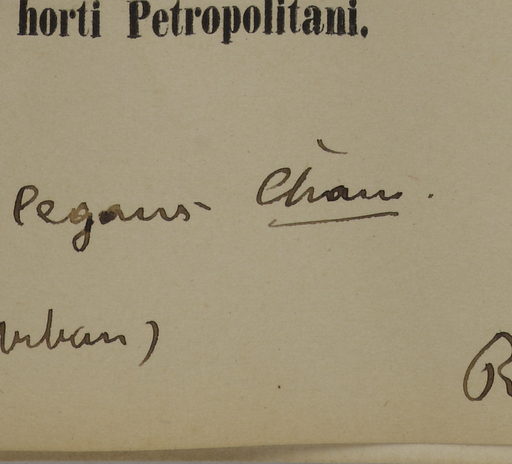 horti Petropolitani.
elegans Cham.
Urban)
R